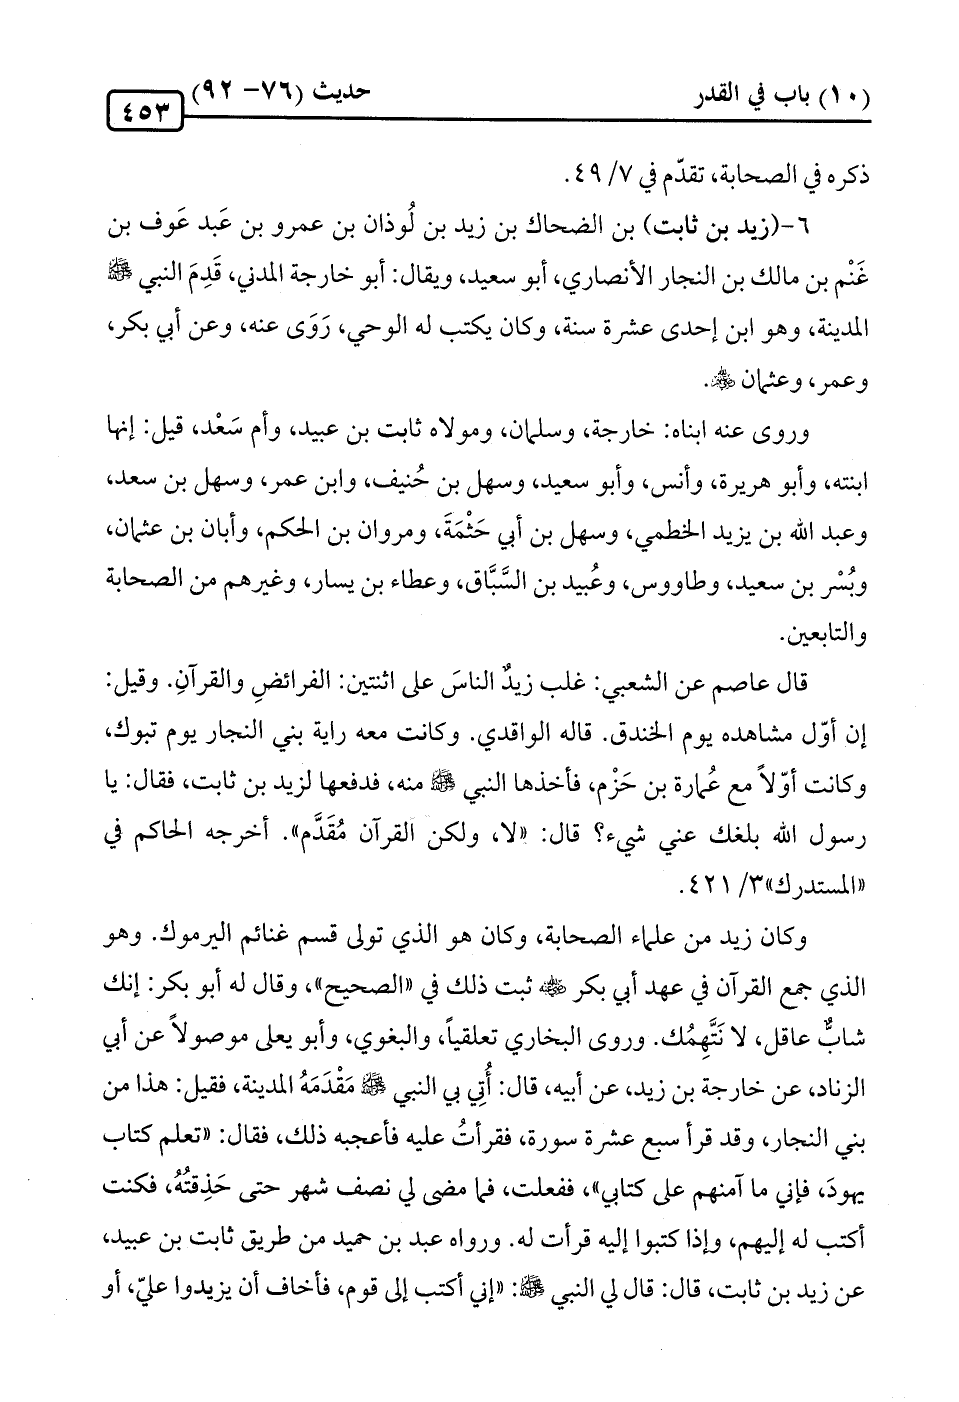 (١٠) باب في القدر
حديث (٧٦- ٩٢)
٤٥٣
ذكره في الصحابة، تقدّم في ٧/ ٤٩.
٦-(زيد بن ثابت) بن الضحاك بن زيد بن لُوذان بن عمرو بن عَبد عَوف بن
غَنْم بن مالك بن النجار الأنصاري، أبو سعيد، ويقال: أبو خارجة المدني، قَدِمَ النبي ﷺ
المدينة، وهو ابن إحدى عشرة سنة، وكان يكتب له الوحي، رَوَى عنه، وعن أبي بكر،
وعمر، وعثمان ﵃.
وروى عنه ابناه: خارجة، وسلمان، ومولاه ثابت بن عبيد، وأم سَعْد، قيل: إنها
ابنته، وأبو هريرة، وأنس، وأبو سعيد، وسهل بن حُنيف، وابن عمر، وسهل بن سعد،
وعبد الله بن يزيد الخطمي، وسهل بن أبي حَثْمَةَ، ومروان بن الحكم، وأبان بن عثمان،
وبُسْر بن سعيد، وطاووس، وعُبيد بن السَّبَّاق، وعطاء بن يسار، وغيرهم من الصحابة
والتابعين.
قال عاصم عن الشعبي: غلب زيدٌ الناسَ على اثنتين: الفرائضِ والقرآنِ. وقيل:
إن أوّل مشاهده يوم الخندق. قاله الواقدي. وكانت معه راية بني النجار يوم تبوك،
وكانت أوّلاً مع عُمارة بن حَزْم، فأخذها النبي ﷺ منه، فدفعها لزيد بن ثابت، فقال: يا
رسول الله بلغك عني شيء؟ قال: «لا، ولكن القرآن مُقَدَّم». أخرجه الحاكم في
«المستدرك»٣/ ٤٢١.
وكان زيد من علماء الصحابة، وكان هو الذي تولى قسم غنائم اليرموك. وهو
الذي جمع القرآن في عهد أبي بكر ﵁ ثبت ذلك في «الصحيح»، وقال له أبو بكر: إنك
شابٌّ عاقل، لا نَتَّهِمُك. وروى البخاري تعلقياً، والبغوي، وأبو يعلى موصولاً عن أبي
الزناد، عن خارجة بن زيد، عن أبيه، قال: أُتِي بي النبي ﷺ مَقْدَمَهُ المدينة، فقيل: هذا من
بني النجار، وقد قرأ سبع عشرة سورة، فقرأتُ عليه فأعجبه ذلك، فقال: «تعلم كتاب
يهودَ، فإني ما آمنهم على كتابي»، ففعلت، فما مضى لي نصف شهر حتى حَذِقتُهُ، فكنت
أكتب له إليهم، وإذا كتبوا إليه قرأت له. ورواه عبد بن حميد من طريق ثابت بن عبيد،
عن زيد بن ثابت، قال: قال لي النبي ﷺ: «إني أكتب إلى قوم، فأخاف أن يزيدوا عليّ، أو